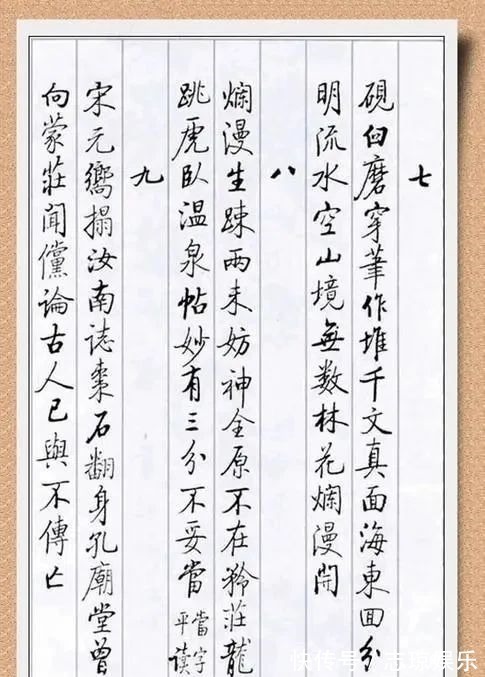 七
硯臼磨穿筆作堆千文真面海東回分
明流水空山境無數林花爛漫開
八
爛漫生踈兩未妨神全原不在矜莊龍
跳虎臥温泉帖妙有三分不妥當
當字
平读
九
宋元嚮搨汝南誌棗石翻身孔廟堂曾
向蒙莊聞儻論古人已與不傳亡
快传号/志琼娱乐